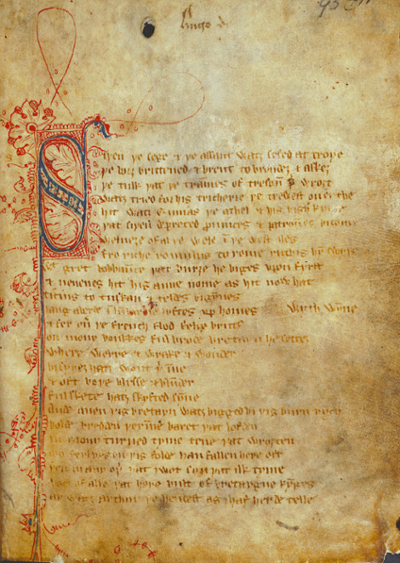 Hugo de
SIþen þe sege & þe assaut watz sesed at troye
þe borȝ brittened & brent to brondeȝ & askez
þe tulk þat þe trammes of tresoun þer wroȝt
watz tried for his tricherie þe trewest on erthe
hit watz ennias þe athel & his highe kynde
þat siþen depreced prouinces & patrounes bicome
welneȝe of al þe wele in þe west iles
fro riche romulus to rome ricchis hym swyþe
gret bobbaunce þat burȝe he biges vpon fyrst
& neuenes hit his aune nome as hit now hat
ticius to tuskan & teldes bigynnes
langaberde in lumbardie lyftes vp homes with wynne
& fer ouer þe french flod felix brutus
on mony bonkkes ful brode bretayn he settez
where werre & wrake & wonder
bi syþez hatz wont þer inne
& oft boþe blysse & blunder
ful skete hatz skyfted synne
Ande quen þis bretayn watz bigged bi þis burn rych
bolde bredden þer inne baret þat lofden
in mony turned tyme tene þat wroȝten
mo ferlyes on þis folde han fallen here oft
þen in any oþer þat I wot syn þat ilk tyme
Bot of alle þat here bult of bretaygne kynges
ay watz arthur þe hendest as I haf herde telle